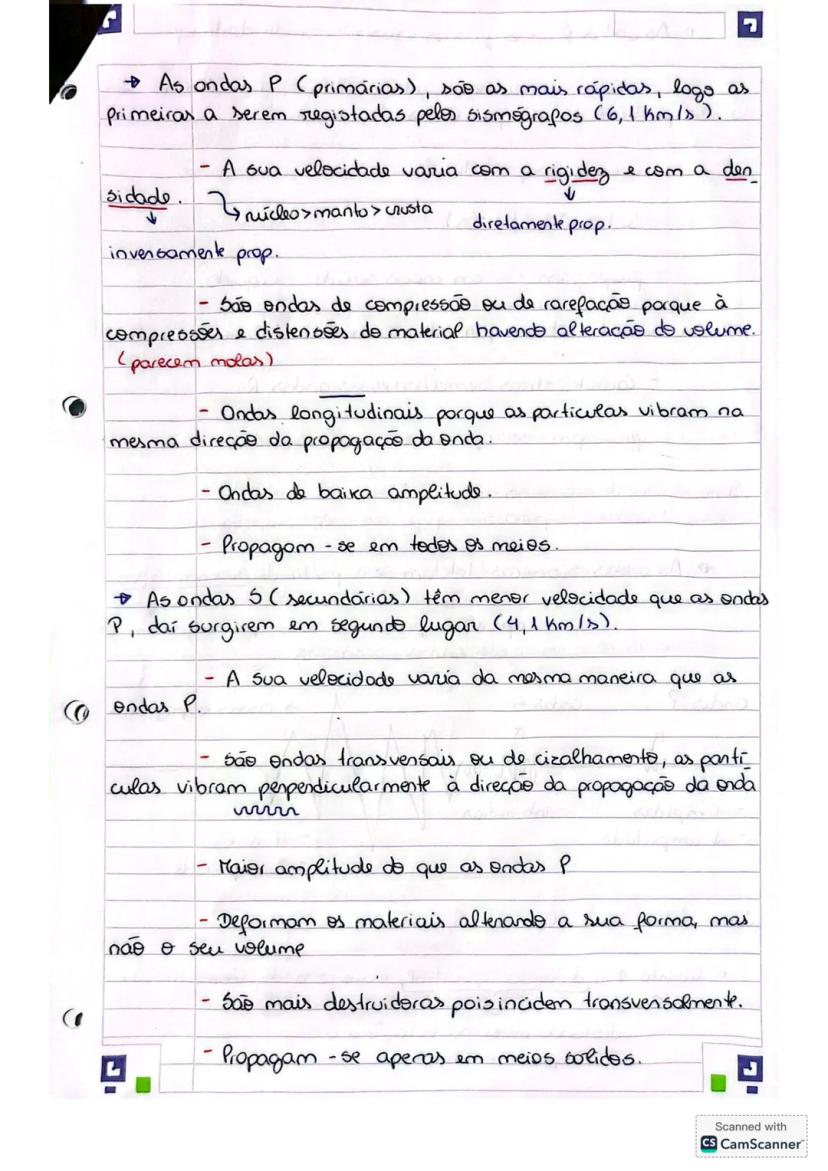 → As ondas P (primárias), são as mais rápidas, logo as
primeiras a serem registadas pelos sismógrafos (6,1 Km/s).
- A sua velocidade varia com a rigidez e com a den_
sidade.
↳ núcleo>manto>crusta
diretamente prop.
inversamente prop.
- São ondas de compressão ou de rarefação porque à
compressões e distensões do material havendo alteração do volume.
(parecem molas)
- Ondas longitudinais porque as particulas vibram na
mesma direção da propagação da onda.
- Ondas de baixa amplitude.
- Propagam-se em todos os meios.
→ As ondas S (secundárias) têm menor velocidade que as ondas
P, daí surgirem em segundo lugar (4,1 Km/s).
- A sua velocidade varia da mesma maneira que as
ondas P.
- São ondas transversais ou de cizalhamento, as partí_
culas vibram perpendicularmente à direção da propagação da onda
- Maior amplitude do que as ondas P
- Deformam os materiais alterando a sua forma, mas
não o seu volume
- São mais destruidoras pois incidem transversalmente.
- Propagam-se apenas em meios sólidos.
Scanned with
CS CamScanner